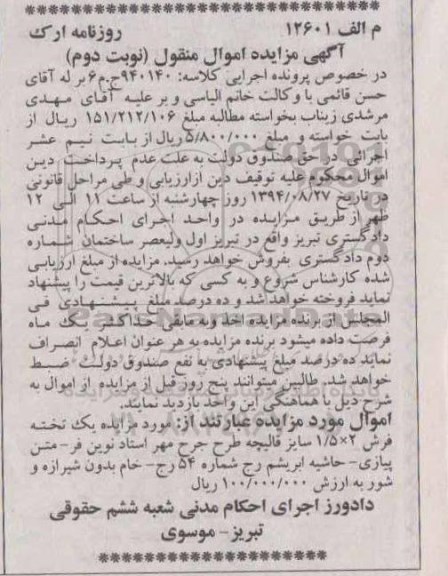 م الف ۱۲۶۰۱ روزنامه ارک
آگهی مزایده اموال منقول (نوبت دوم)
در خصوص پرونده اجرایی کلاسه: ۹۴۰۱۴۰ج.م۶ بر له آقای
حسن قائمی با وکالت خانم الیاسی و بر علیه آقای مهدی
مرشدی زیناب بخواسته مطالبه مبلغ ۱۵۱/۲۱۲/۱۰۶ ریال از
بابت خواسته و مبلغ ۵/۸۰۰/۰۰۰ ریال از بابت نیم عشر
اجرائی در حق صندوق دولت به علت عدم پرداخت دین
اموال محکوم علیه توقیف دین ازارزیابی و طی مراحل قانونی
در تاریخ ۱۳۹۴/۰۸/۲۷ روز چهارشنبه از ساعت ۱۱ الی ۱۲
ظهر از طریق مزایده در واحد اجرای احکام مدنی
دادگستری تبریز واقع در تبریز اول ولیعصر ساختمان شماره
دوم دادگستری بفروش خواهد رسید. مزایده از مبلغ ارزیابی
شده کارشناس شروع و به کسی که بالاترین قیمت را پیشنهاد
نماید فروخته خواهد شد و ده درصد مبلغ پیشنهادی فی
المجلس از برنده مزایده اخذ و به مابقی حداکثر یک ماه
فرصت داده میشود برنده مزایده به هر عنوان اعلام انصراف
نماید ده درصد مبلغ پیشنهادی به نفع صندوق دولت ضبط
خواهد شد. طالبین میتوانند پنج روز قبل از مزایده از اموال به
شرح ذیل با هماهنگی این واحد بازدید نمایند.
اموال مورد مزایده عبارتند از: مورد مزایده یک تخته
فرش ۲×۱/۵ سایز قالیچه طرح جرح مهر استاد نوین فر- متن
پیازی- حاشیه ابریشم رج شماره ۵۴ رج- خام بدون شیرازه و
شور به ارزش ۱۰۰/۰۰۰/۰۰۰ ریال
دادورز اجرای احکام مدنی شعبه ششم حقوقی
تبریز- موسوی